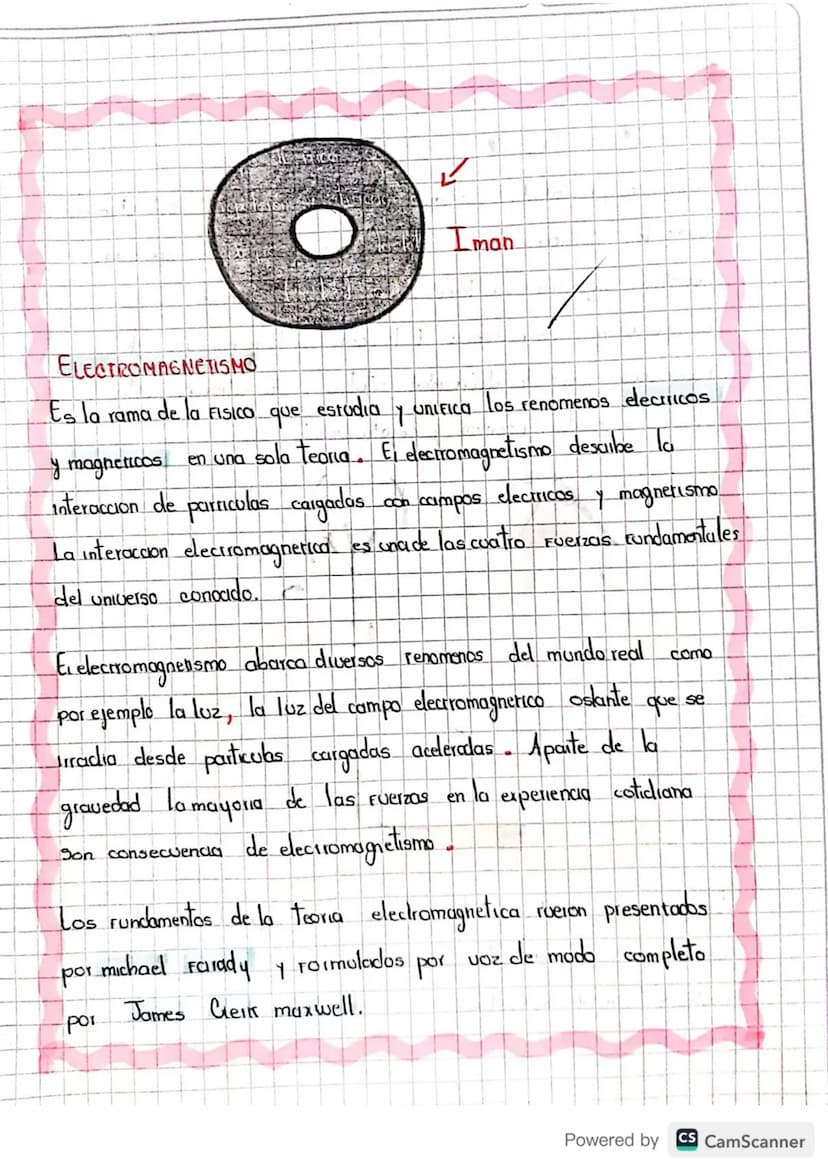 Iman
ELECTROMAGNETISMO
Es la rama de la FISICO que estudia y UNIFICA los fenomenos electricos
y magneticos en una sola teoria. El electromagnetismo describe la
interaccion de particulas cargadas con campos electricos y magnetismo
La interaccion electromagnetica es una de las cuatro Fuerzas fundamentales
del universo conocido.
El electromagnetismo abarca diversos fenomenos del mundo real como
por ejemplo la luz, la luz del campo electromagnetico oslante que se
irradia desde particulas cargadas aceleradas. Aparte de la
gravedad la mayoria de las Fuerzas en la experiencia cotidiana
son consecuencia de electromagnetismo.
Los fundamentos de la teoria electromagnetica fueron presentados
por michael Farady y formulados por voz de modo completo
por James Clerk maxwell.
Powered by CS CamScanner